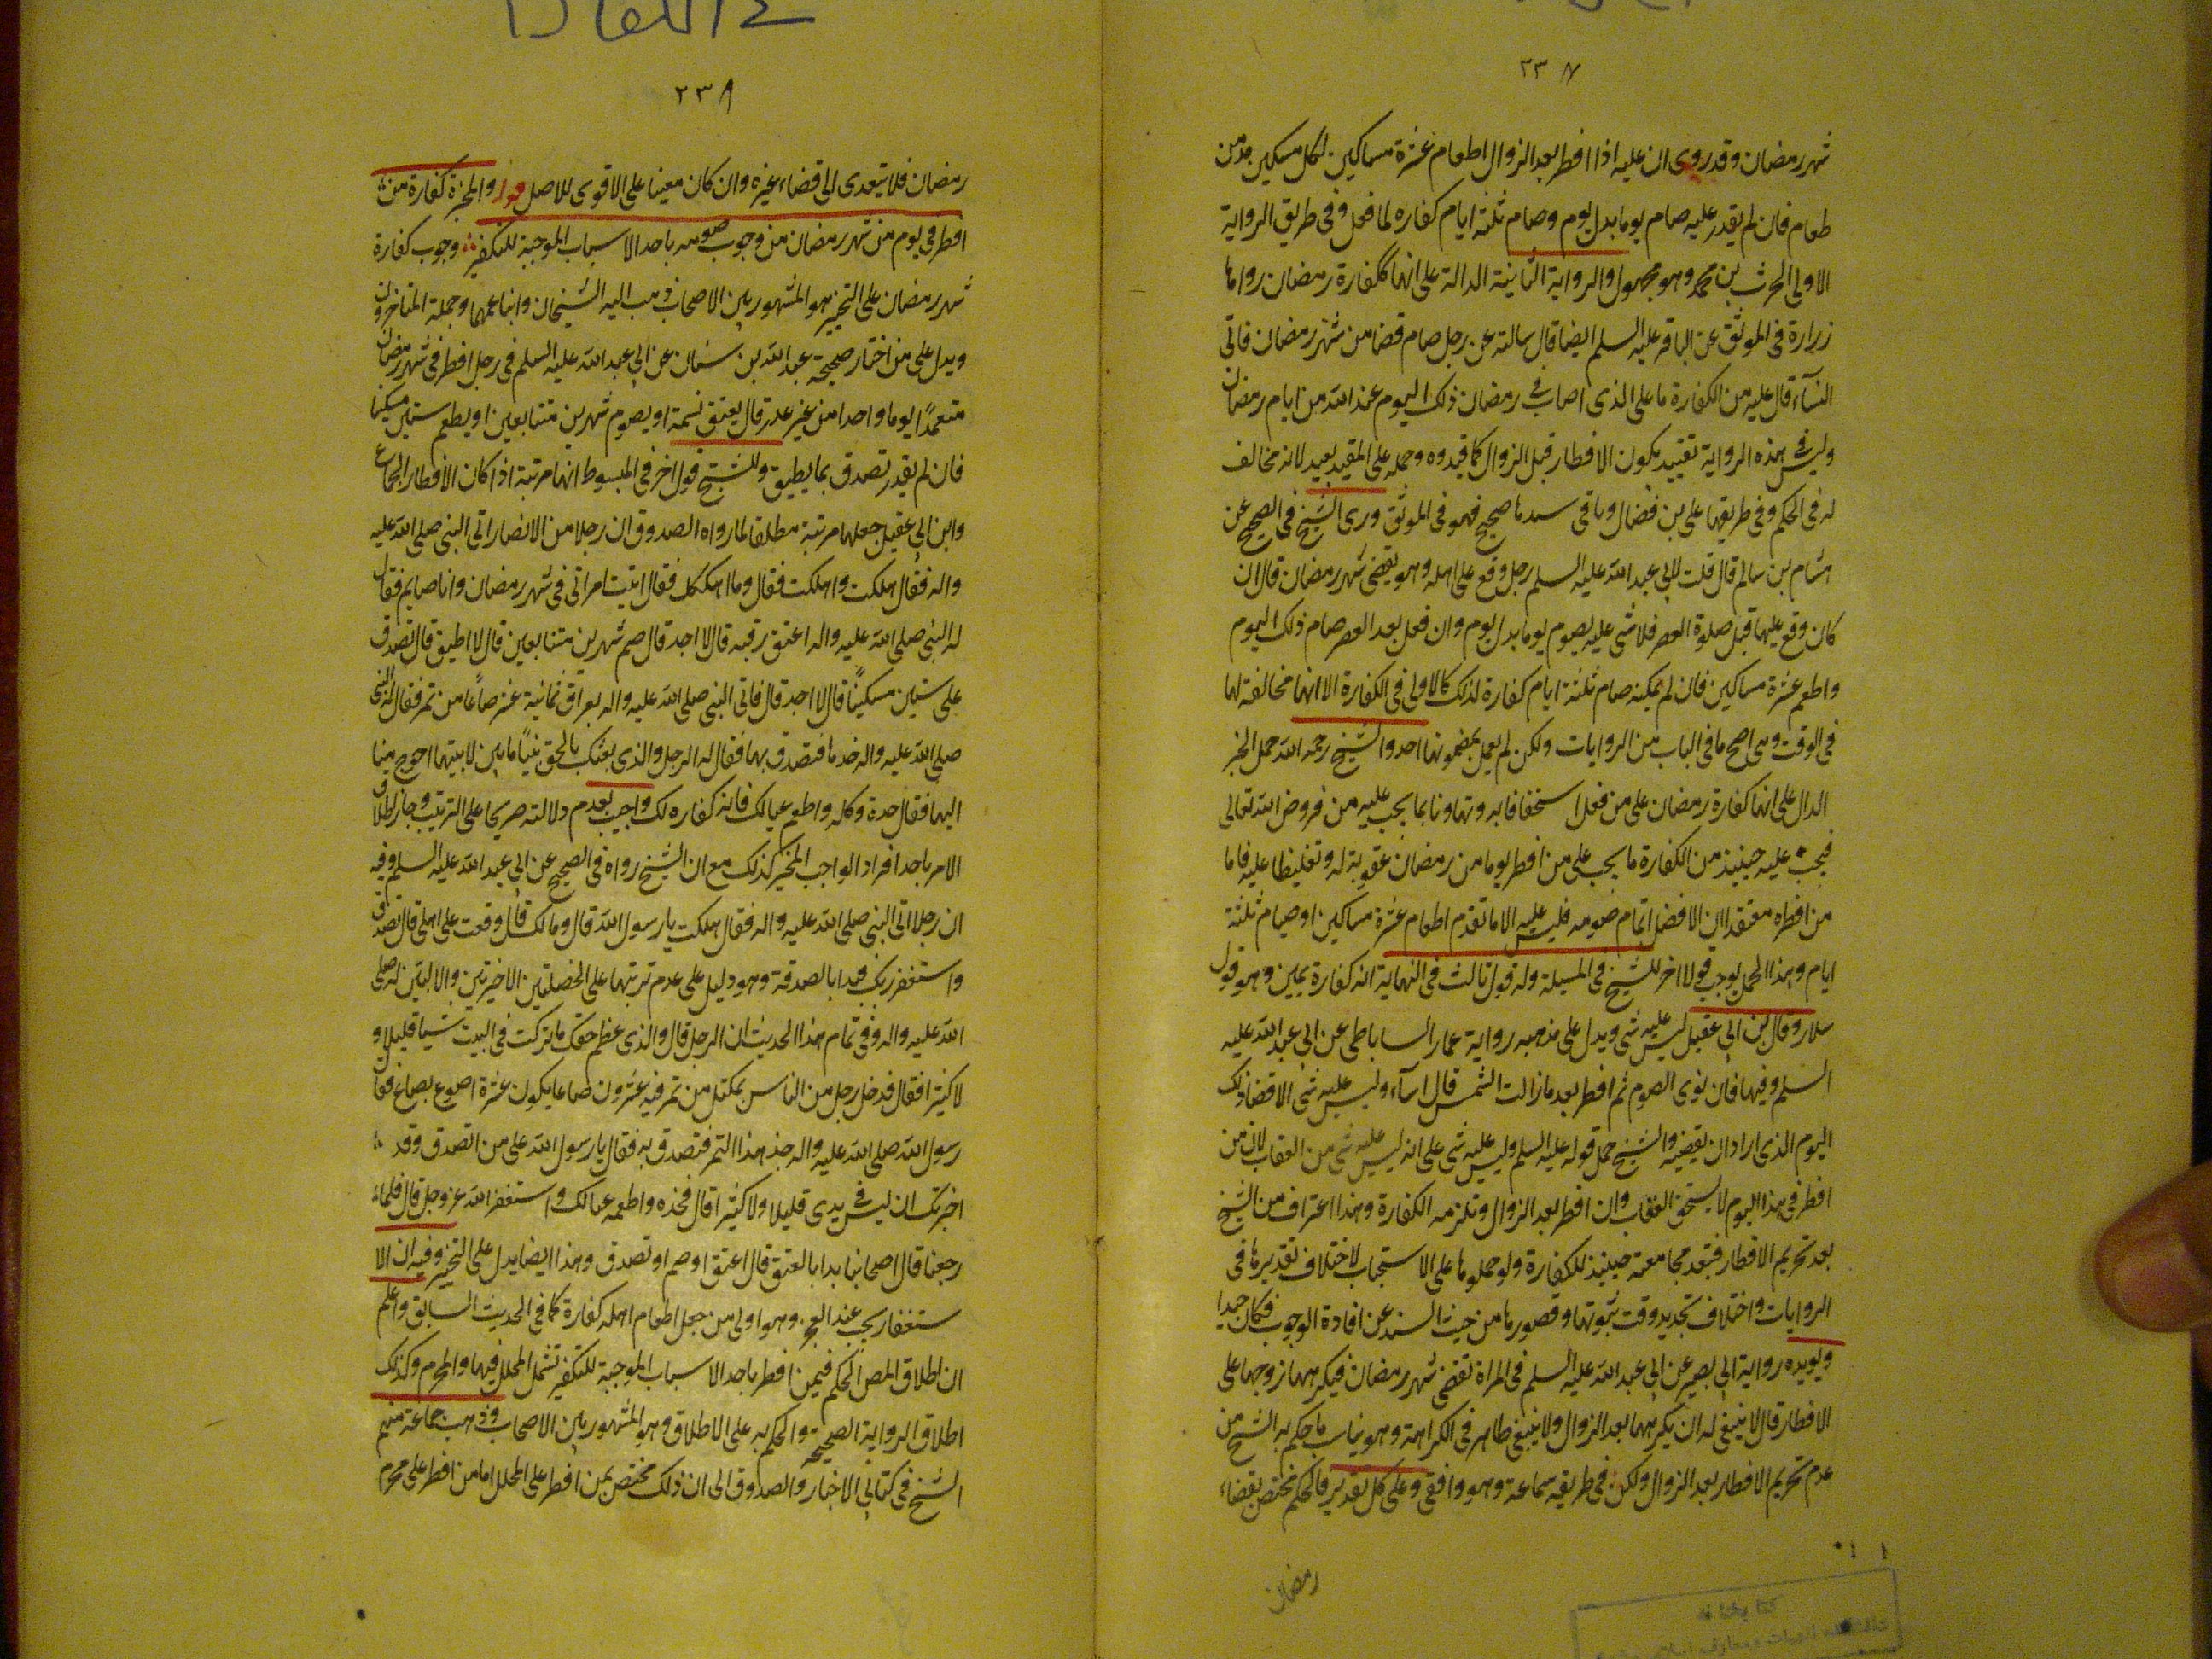 ٢٣٧
شهر رمضان وقد روى ان عليه اذا افطر بعد الزوال اطعام عشرة مساكين لكل مسكين مد من
طعام فان لم يقدر عليه صام يوما بدل يوم وصام ثلثة ايام كفاره لما فعل وفى طريق الرواية
الاولى الحرث بن محمد وهو مجهول والرواية الثانية الدالة على انها ككفارة رمضان رواها
زرارة فى الموثق عن الباقر عليه السلم ايضا قال سالته عن رجل صام قضا من شهر رمضان فاتى
النساء قال عليه من الكفارة ما على الذى اصاب فى رمضان ذلك اليوم عند الله من ايام رمضان
وليس فى هذه الرواية تقييد بكون الافطار قبل الزوال كما قيدوه وحمله على المقيد بعيد لانه مخالف
له فى الحكم وفى طريقها على بن فضال وباقى سندها صحيح فهو فى الموثق وروى الشيخ فى الصحيح عن
هشام بن سالم قال قلت لابى عبد الله عليه السلم رجل وقع على اهله وهو يقضى شهر رمضان قال ان
كان وقع عليها قبل صلوة العصر فلا شى عليه يصوم يوما بدل يوم وان فعل بعد العصر صام ذلك اليوم
واطعم عشرة مساكين فان لم يمكنه صام ثلثة ايام كفارة لذلك كالاولى فى الكفارة الا انها مخالفة لها
فى الوقت وهى اصح ما فى الباب من الروايات ولكن لم يعمل بمضمونها احد والشيخ رحمه الله حمل الخبر
الدال على انها كفارة رمضان على من فعل استخفافا به وتهاونا بما يجب عليه من فروض الله تعالى
فيجب عليه حينئذ من الكفارة ما يجب على من افطر يوما من رمضان عقوبة له وتغليظا عليه فاما
من افطره معتقدا ان الافضل اتمام صومه فليس عليه الا ما تقدم اطعام عشرة مساكين او صيام ثلثة
ايام وهذا الحمل يوجب قولا اخر للشيخ فى المسيلة وله قول ثالث فى النهاية انه كفارة يمين وهو قول
سلار وقال بن ابى عقيل ليس عليه شى ويدل على مذهبه رواية عمار الساباطى عن ابى عبد الله عليه
السلم وفيها فان نوى الصوم ثم افطر بعد ما زالت الشمس قال اساء وليس عليه شى الا قضا ذلك
اليوم الذى اراد ان يقضيه والشيخ حمل قوله عليه السلم وليس عليه شى على انه ليس عليه شى من العقاب لان من
افطر فى هذا اليوم لا يستحق العقاب وان افطر بعد الزوال وتلزمه الكفارة وهذا اعتراف من الشيخ
بعد تحريم الافطار فتبعد مجامعته حينئذ للكفارة ولو حملوها على الاستحباب لاختلاف تقديرها فى
الروايات واختلاف تحديد وقت ثبوتها وقصورها من حيث السند عن افادة الوجوب فكان جيدا
ويويده رواية ابى بصير عن ابى عبد الله عليه السلم فى المراة تقضى شهر رمضان فيكرهها زوجها على
الافطار قال لا ينبغى له ان يكرهها بعد الزوال ولا ينبغى ظاهر فى الكراهة وهو يناسب ما حكم به الشيخ من
عدم تحريم الافطار بعد الزوال ولكن فى طريقه سماعة وهو واقفى وعلى كل تقدير فالحكم مختص بقضاء
رمضان
٢٣٨
رمضان فلا يتعدى الى قضاء غيره وان كان معينا على الاقوى للاصل قوله والمخيرة كفارة من
افطر فى يوم من شهر رمضان من وجوب صومه باحد الاسباب الموجبة للتكفير وجوب كفارة
شهر رمضان على التخيير هو المشهور بين الاصحاب ذهب اليه الشيخان واتباعهما وجملة المتاخرين
ويدل على من اختار صحيحة عبد الله بن سنان عن ابى عبد الله عليه السلم فى رجل افطر فى شهر رمضان
متعمدا يوما واحدا من غير عذر قال يعتق نسمة او يصوم شهرين متتابعين او يطعم ستين مسكينا
فان لم يقدر تصدق بما يطيق وللشيخ قول اخر فى المبسوط انها مرتبة اذا كان الافطار بالجماع
وابن ابى عقيل جعلها مرتبة مطلقا لما رواه الصدوق ان رجلا من الانصار اتى النبى صلى الله عليه
واله فقال هلكت واهلكت فقال وما اهلكك فقال اتيت امراتى فى شهر رمضان وانا صايم فقال
له النبى صلى الله عليه واله اعتق رقبه قال لا اجد قال صم شهرين متتابعين قال لا اطيق قال تصدق
على ستين مسكينا قال لا اجد قال فاتى النبى صلى الله عليه واله بعراق ثمانية عشر صاعا من تمر فقال له النبى
صلى الله عليه واله خذها فتصدق بها فقال له الرجل والذى بعثك بالحق نبيا ما بين لابيتها احوج منا
اليها فقال خذه وكله واطعم عيالك فانه كفاره لك واجيب بعدم دلالته صريحا على الترتيب وجاز اطلاق
الامر باحد افراد الواجب المخير كذلك مع ان الشيخ رواه فى الصحيح عن ابى عبد الله عليه السلم وفيه
ان رجلا اتى النبى صلى الله عليه واله فقال هلكت يا رسول الله قال ومالك قال وقعت على اهلى قال تصدق
واستغفر ربك فبدا بالصدقة وهو دليل على عدم ترتبها على الخصلتين الاخيرتين والا لبين له صلى
الله عليه واله وفى تمام هذا الحديث ان الرجل قال والذى عظم حقك ما تركت فى البيت شيا قليلا و
لا كثيرا فقال فدخل رجل من الناس بمكتل من تمر فيه عشرون صاعا يكون عشرة اصوع بصاع فقال
رسول الله صلى الله عليه واله خذ هذا التمر فتصدق به فقال يا رسول الله على من اتصدق وقد
اخبرتك ان ليس فى يدى قليلا ولا كثيرا قال فخذه واطعمه عيالك واستغفر الله عز وجل قال فلما
رجعنا قال اصحابنا بدا بالعتق قال اعتق او صم او تصدق وهذا ايضا يدل على التخيير وفيه ان الا
ستغفار يجب عند العجز وهو اولى من جعل اطعام اهله كفارة كما فى الحديث السابق واعلم
ان اطلاق المص الحكم فيمن افطر باحد الاسباب الموجبة للتكفير تشمل المحلل فيها والمحرم وكذلك
اطلاق الرواية الصحيحة والحكم به على الاطلاق وهو المشهور بين الاصحاب وذهب جماعة منهم
الشيخ فى كتابى الاخبار والصدوق الى ان ذلك مختص بمن افطر على المحلل اما من افطر على محرم